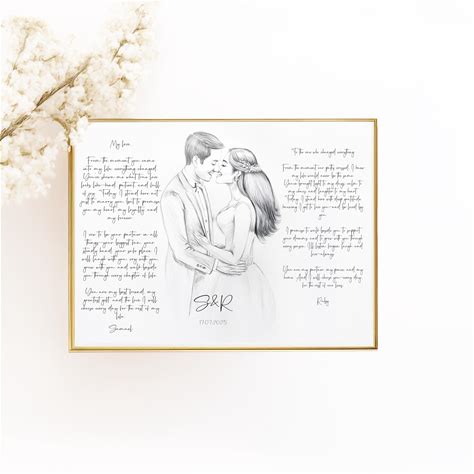 My love
From the moment you came
into my life, everything changed.
You've shown me what true love
feels like- kind, patient, and full
of joy. Today, I stand here not
just to marry you, but to promise
you my heart, my loyalty and
my forever.
I vow to be your partner in all
things-your biggest fan, your
steady hand, your safe place. I
will laugh with you, cry with you,
grow with you, and walk beside
you through every chapter of life.
You are my best friend, my
greatest gift, and the love I will
choose every day for the rest of my
life.
Samuel
S&R
17.07.2025
To the one who changed everything
From the moment our paths crossed, I knew
my life would never be the same.
You've brought light to my days, calm to
my
Today, I stand here with deep gratitude,
knowing I get to love you- and be loved by
you.
I promise to walk beside you, to support
your dreams, and to grow with you through
every season. listen, forgive, laugh, and
love-always.
You are my partner, my peace, and my
home. And I will choose you every day
for the rest of our lives.
Ruby